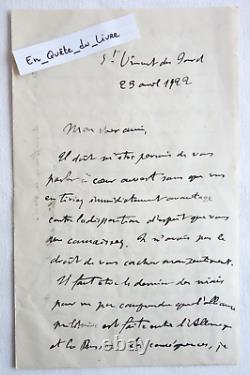 En_Quête_du_Livre
St Vincent du Jard
23 avril 1922
Mon cher ami,
Il doit m'être permis de vous
parler à cœur ouvert sans que vous
en tiriez immédiatement avantage
contre la disposition d'esprit que vous
me connaissez. Je n'avais pas le
droit de vous cacher mon sentiment.
Il faut être le dernier des niais
pour ne pas comprendre que l'alliance
militaire est faite entre l'Allemagne
et la Russie. les conséquences, je